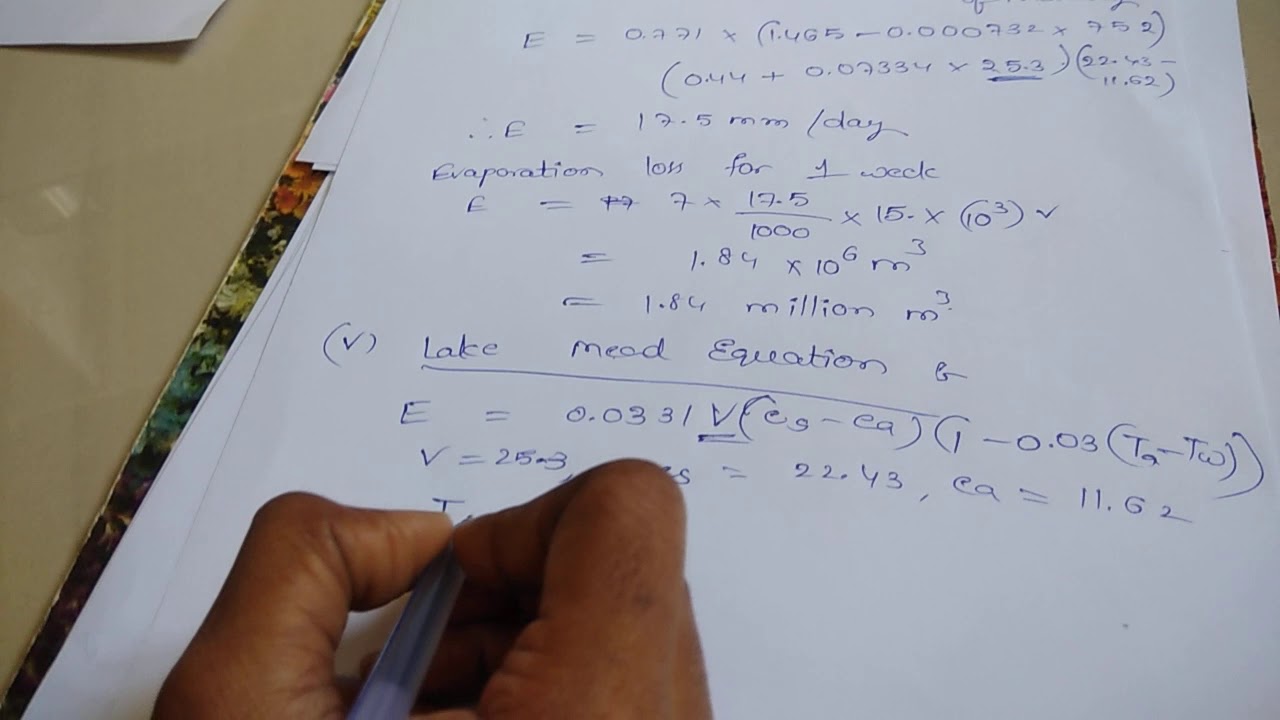 E = 0.771 × (1.465 - 0.000732 × 752)
(0.44 + 0.07334 × 25.3) (22.43 - 11.62)
∴ E = 17.5 mm/day
Evaporation loss for 1 week
E = 7 × 17.5/1000 × 15. × (10³) ✓
= 1.84 × 10⁶ m³
= 1.84 million m³.
(V) Lake Mead Equation
E = 0.0331 V (es - ea) (1 - 0.03 (Ta - Tw))
V = 25.3, es = 22.43, ea = 11.62